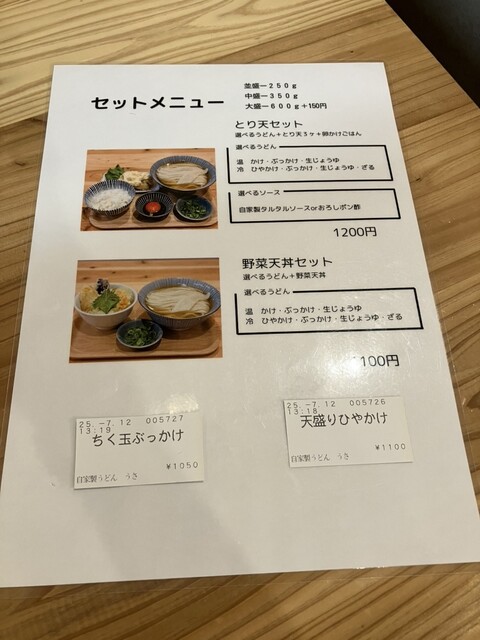 セットメニュー
並盛ー250g
中盛ー350g
大盛ー600g+150円
とり天セット
選べるうどん+とり天3ヶ+卵かけごはん
選べるうどん
温 かけ・ぶっかけ・生じょうゆ
冷 ひやかけ・ぶっかけ・生じょうゆ・ざる
選べるソース
自家製タルタルソースorおろしポン酢
1200円
野菜天丼セット
選べるうどん+野菜天丼
選べるうどん
温 かけ・ぶっかけ・生じょうゆ
冷 ひやかけ・ぶっかけ・生じょうゆ・ざる
100円
25.-7.12 005727
13:19
ちく玉ぶっかけ
¥1050
自家製うどん うさ
25.-7.12 005726
13:18
天盛りひやかけ
¥1100
自家製うどん うさ